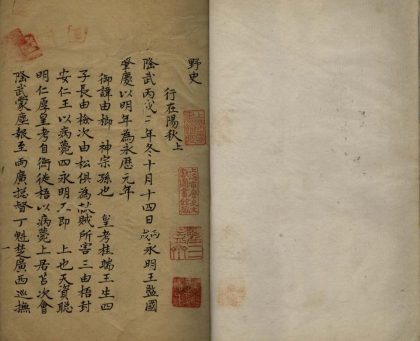 野史
行在陽秋上
隆武丙戌二年冬十月十四日丙戌永明王監國
肇慶以明年為永曆元年
御諱由榔 神宗孫也 皇考桂端王生四
子長由 次由 俱為 賊所害三由 封
安仁王以病薨四永明王即 上也天資聰
明仁厚皇考自衡徙梧以病薨上居 次會
隆武蒙塵報至兩廣提督丁魁楚廣西巡撫